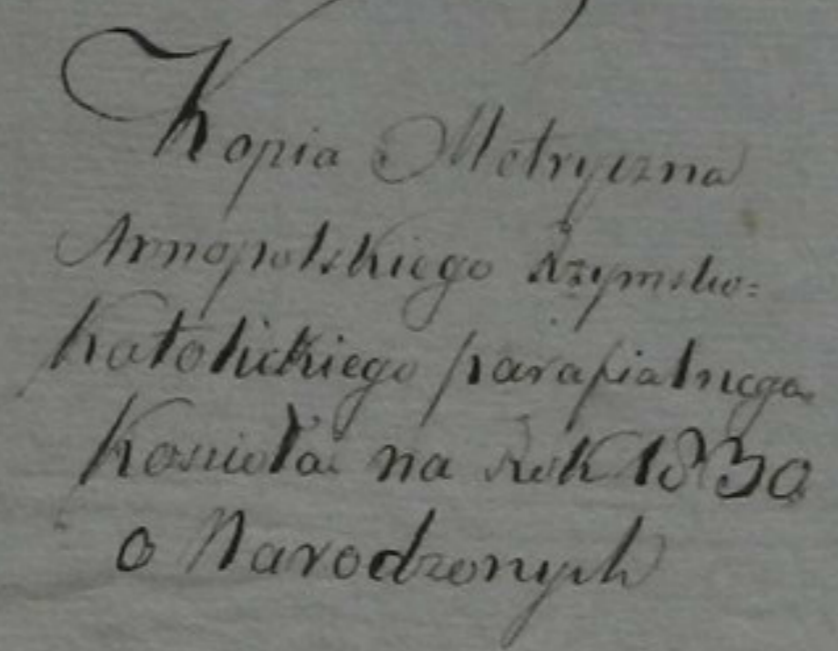 Kopia Metryczna
Annopolskiego Rzymsko=
Katolickiego parafialnego
Koscioła na Rok 1830
o Narodzonych